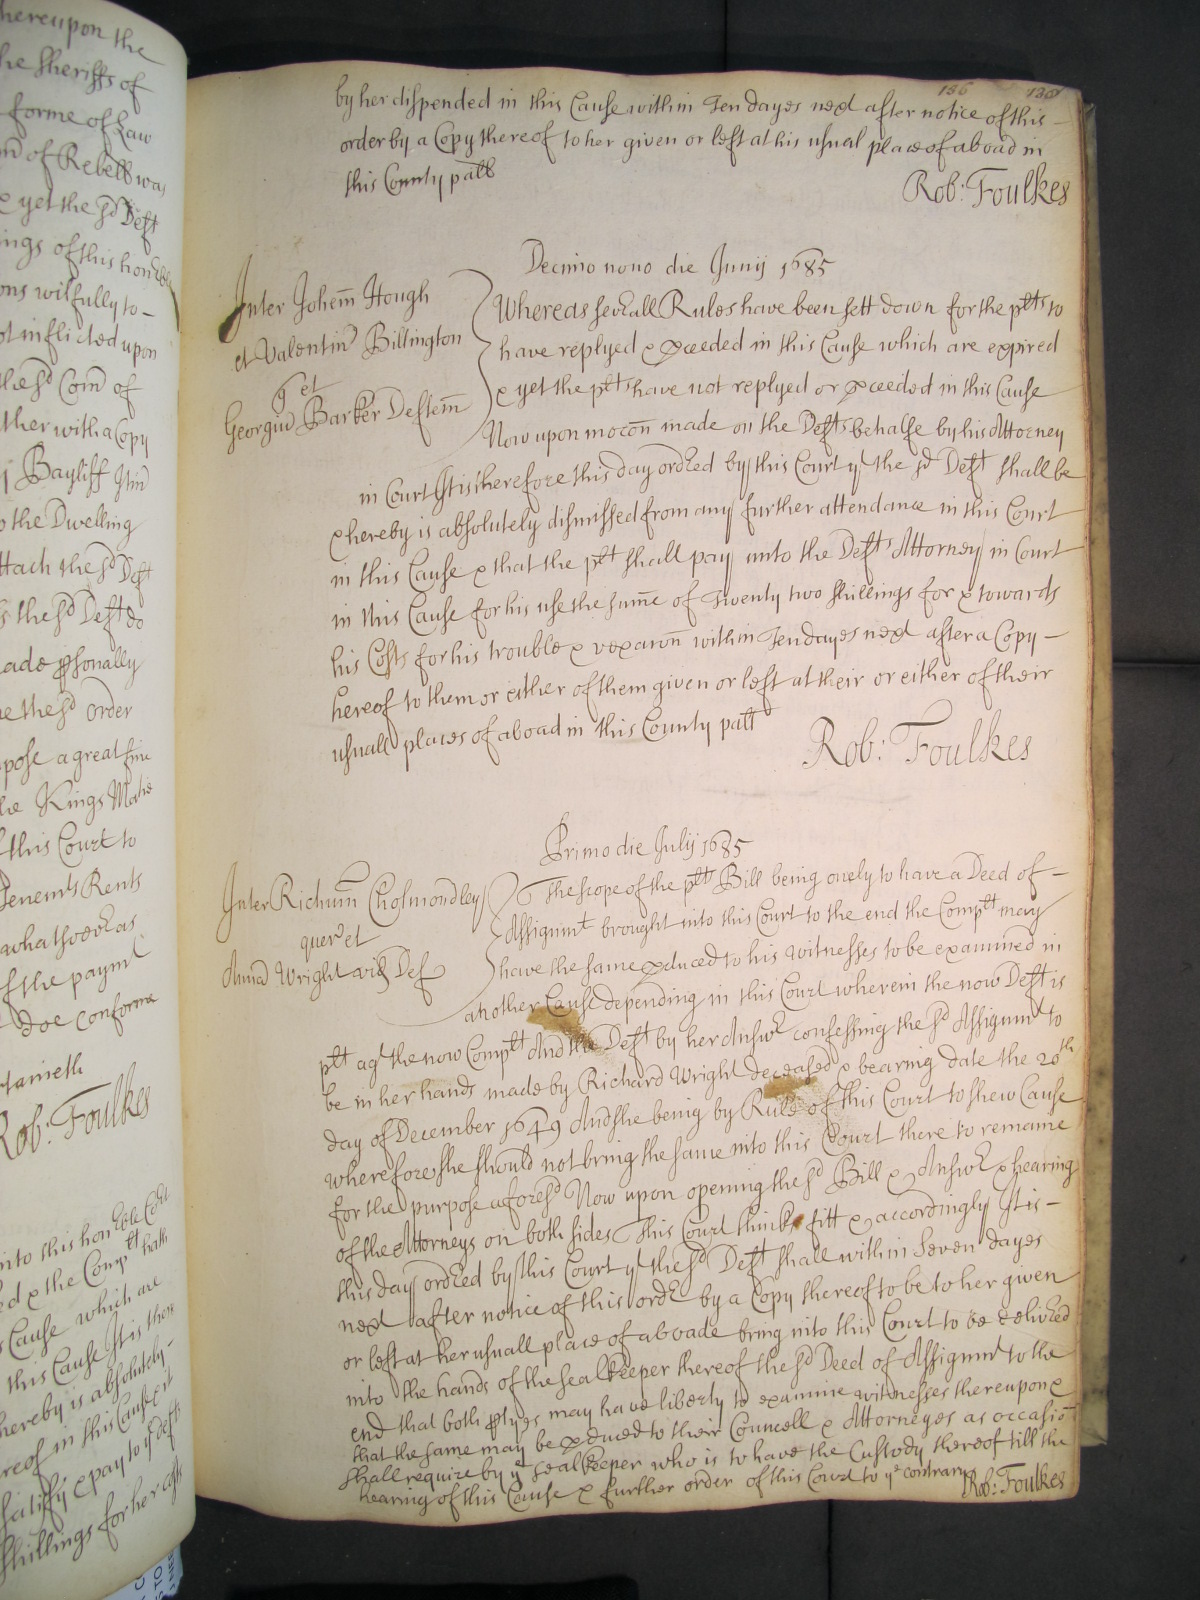 hereupon the
he Sheriffs of
forme of Law
of Rebell was
& yet the sd Deft
ings of this hon
ons wilfully to –
ot inflicted upon
the sd Com of
ther with a Copy
Bayliff Itin
o the Dwelling
ttach the sd Deft
the sd Deft do
ade psonally
the sd order
pose a great fine
he Kings Matie
f this Court to
Tenemts Rents
whatsoever as
f the paymt
doe conforme
tarrieth
Rob: Foulkes
into this honble Cort
ed & the Complt hath
Cause which are
this Cause It is then
hereby is absolutely –
reof in this Cause & it
satisfy & pay to ye Deft
shillings for her costs
156 130
by her dispended in this Cause within Ten dayes next after notice of this –
order by a Copy thereof to her given or left at his usual place of aboad in
this County pallt
Rob: Foulkes
Decimo nono die Junij 1685
Inter Johem Hough
et Valentin Billington
q et
Georgiu Barker Deftem
Whereas sevall Rules have been sett down for the plts to
have replyed & pceeded in this Cause which are expired
& yet the plts have not replyed or pceeded in this Cause
Now upon mocon made on the Defts behalfe by his Attorney
in Court It is therefore this day ordred by this Court yt the sd Deft shall be
& hereby is absolutely dismissed from any further attendance in this Court
in this Cause & that the plt shall pay unto the Defts Attorney in Court
in this Cause for his use the sume of Twenty two shillings for & towards
his Costs for his trouble & vexacon within Ten dayes next after a Copy –
hereof to them or either of them given or left at their or either of their
usuall places of aboad in this County pallt
Rob: Foulkes
Primo die Julij 1685
Inter Richum Cholmondley
quer et
Anna Wright vid Def
The scope of the plts Bill being onely to have a Deed of –
Assignmt brought into this Court to the end the Complt may
have the same pduced to his witnesses to be examined in
another Cause depending in this Court wherein the now Deft is
plt agt the now Complt And the Deft by her Answr confessing the sd Assignmt to
be in her hands made by Richard Wright deceased & bearing date the 20th
day of December 1649 And she being by Rule of this Court to shew Cause
wherefore she should not bring the same into this Court there to remaine
for the purpose aforesd Now upon opening the sd Bill & Answr & hearing
of the Attorneys on both sides This Court thinks fitt & accordingly It is –
this day ordred by this Court yt the sd Deft shall within Seven dayes
next after notice of this ordr by a Copy thereof to be to her given
or left at her usuall place of aboade bring into this Court to be delivred
into the hands of the seal keeper thereof the sd Deed of Assignmt to the
end that both ptyes may have liberty to examine witnesses thereupon &
that the same may be pduced to their Councell & Attorneyes as occasio
shall require by ye seal keeper who is to have the Custody thereof till the
hearing of this Cause & further order of this Court to ye contrary
Rob: Foulkes